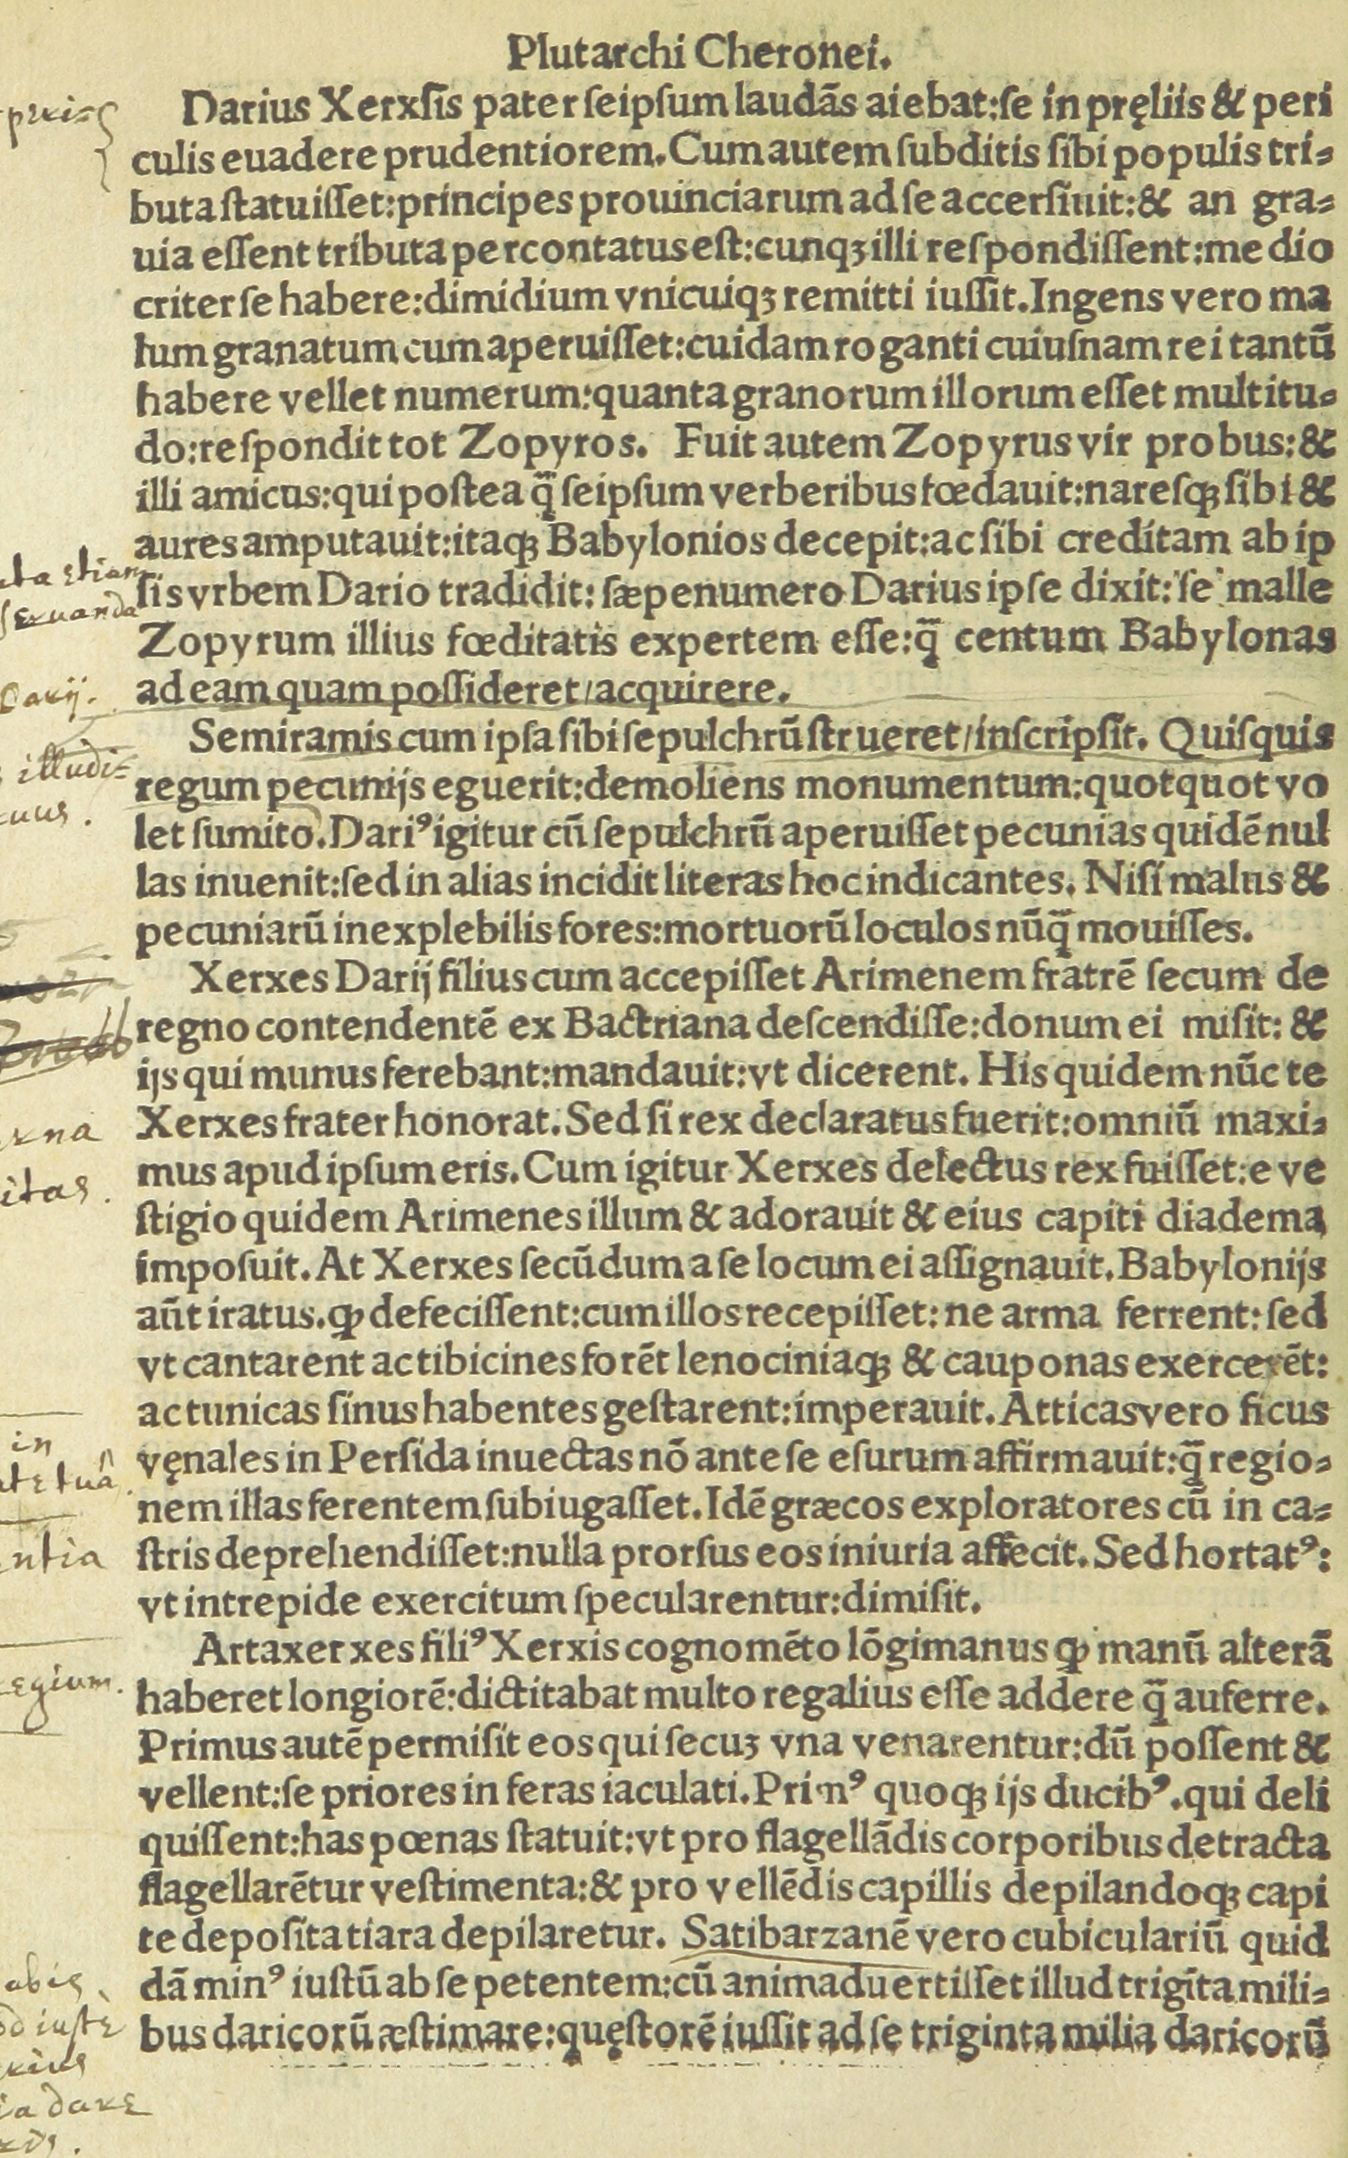 Plutarchi Cheronei.
Darius Xerxſis pater ſeipſum laudãs aiebat:ſe in pręliis & peri
culis euadere prudentiorem. Cum autem ſubditis ſibi populis tri-
buta ſtatuiſſet:principes prouinciarum ad ſe accerſiuit:& an gra-
uia eſſent tributa percontatus eſt:cunqꝫ illi reſpondiſſent:medio
criter ſe habere:dimidium vnicuiqꝫ remitti iuſſit. Ingens vero ma
lum granatum cum aperuiſſet:cuidam roganti cuiuſnam rei tantũ
habere vellet numerum:quanta granorum illorum eſſet multitu-
do:reſpondit tot Zopyros. Fuit autem Zopyrus vir probus:&
illi amicus:qui poſtea q̃ ſeipſum verberibus fœdauit:nareſqꝫ ſibi &
aures amputauit:itaqꝫ Babylonios decepit:ac ſibi creditam ab ip
ſis vrbem Dario tradidit: ſæpenumero Darius ipſe dixit: ſe malle
Zopyrum illius fœditatis expertem eſſe:q̃ centum Babylonas
ad eam quam poſſideret/acquirere.
Semiramis cum ipſa ſibi ſepulchrũ ſtrueret/inſcripſit. Quiſquis
regum pecunijs eguerit:demoliens monumentum:quotquot vo
let ſumito. Dariꝰ igitur cũ ſepulchrũ aperuiſſet pecunias quidẽ nul
las inuenit:ſed in alias incidit literas hoc indicantes. Niſi malus &
pecuniarũ inexplebilis fores:mortuorũ loculos nũq̃ mouiſſes.
Xerxes Darij filius cum accepiſſet Arimenem fratrẽ ſecum de
regno contendentẽ ex Bactriana deſcendiſſe:donum ei miſit: &
ijs qui munus ferebant:mandauit:vt dicerent. His quidem nũc te
Xerxes frater honorat. Sed ſi rex declaratus fuerit:omniũ maxi-
mus apud ipſum eris. Cum igitur Xerxes delectus rex fuiſſet:e ve
ſtigio quidem Arimenes illum & adorauit & eius capiti diadema
impoſuit. At Xerxes ſecũdum a ſe locum ei aſſignauit. Babylonijs
aũt iratus. ꝙ defeciſſent:cum illos recepiſſet: ne arma ferrent: ſed
vt cantarent ac tibicines forẽt lenociniaqꝫ & cauponas exercerẽt:
ac tunicas ſinus habentes geſtarent:imperauit. Atticas vero ficus
vęnales in Perſida inuectas nõ ante ſe eſurum affirmauit:q̃ regio-
nem illas ferentem ſubiugaſſet. Idẽ græcos exploratores cũ in ca-
ſtris deprehendiſſet:nulla prorſus eos iniuria affecit. Sed hortatꝰ:
vt intrepide exercitum ſpecularentur:dimiſit.
Artaxerxes filiꝰ Xerxis cognomẽto lõgimanus ꝙ manũ alterã
haberet longiorẽ:dictitabat multo regalius eſſe addere q̃ auferre.
Primus autẽ permiſit eos qui ſecuꝫ vna venarentur:dũ poſſent &
vellent:ſe priores in feras iaculati. Primꝰ quoqꝫ ijs ducibꝰ. qui deli
quiſſent:has pœnas ſtatuit:vt pro flagellãdis corporibus detracta
flagellarẽtur veſtimenta:& pro vellẽdis capillis depilandoqꝫ capi
te depoſita tiara depilaretur. Satibarzanẽ vero cubiculariũ quid
dã minꝰ iuſtũ ab ſe petentem:cũ animaduertiſſet illud trigĩta mili-
bus daricorũ æſtimare:quęſtorẽ iuſſit ad ſe triginta milia daricorũ